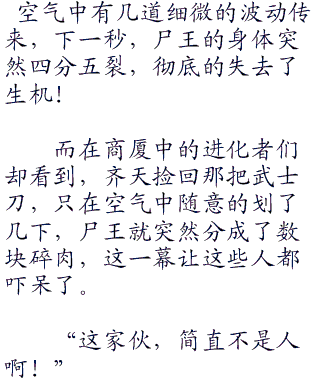 空气中有几道细微的波动传
来，下一秒，尸王的身体突
然四分五裂，彻底的失去了
生机！
而在商厦中的进化者们
却看到，齐天捡回那把武士
刀，只在空气中随意的划了
几下，尸王就突然分成了数
块碎肉，这一幕让这些人都
吓呆了。
“这家伙，简直不是人
啊！”